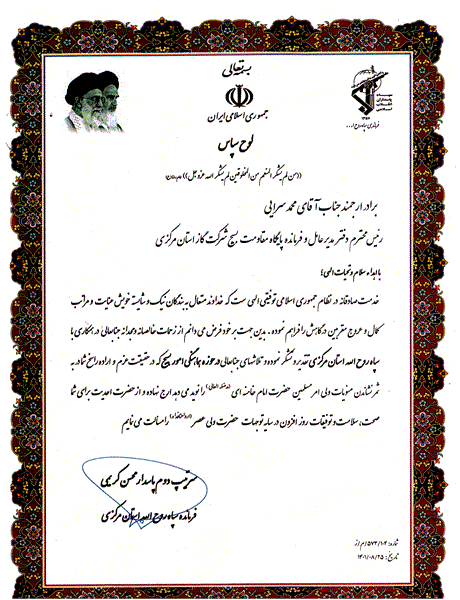 بسمه تعالی
جمهوری اسلامی ایران
سپاه
پاسداران
انقلاب
اسلامی
لوح سپاس
((من لم یشکر المنعم من المخلوقین لم یشکر الله عزوجل))
برادر ارجمند جناب آقای محمد سرابی
رئیس محترم دفتر مدیرعامل و فرمانده پایگاه مقاومت بسیج شرکت گاز استان مرکزی
با اهداء سلام و تحیات الهی؛
خدمت صادقانه در نظام جمهوری اسلامی توفیقی الهی است که خداوند متعال به بندگان نیک و شایسته خویش عنایت و مراتب
کمال و عروج مقربین درگاهش را فراهم نموده. بدین جهت بر خود فرض می دانم از زحمات خالصانه و مجدانه جنابعالی در همکاری با
سپاه روح الله استان مرکزی تقدیر و تشکر نموده و تلاشهای جنابعالی در حوزه هماهنگی امور بسیج که در حقیقت عزم و اراده راسخ شما در به
ثمر نشاندن منویات ولی امر مسلمین حضرت امام خامنه ای (مدظله العالی) را نوید می دهد ارج نهاده و از حضرت احدیت برای شما
صحت، سلامت و توفیقات روز افزون در سایه توجهات حضرت ولی عصر را مسألت می نمایم
سرتیپ دوم پاسدار محسن کریمی
فرمانده سپاه روح الله استان مرکزی
شماره: ۵۷۲/۱۰۲/م از
تاریخ: ۱۴۰۱/۰۸/۲۵